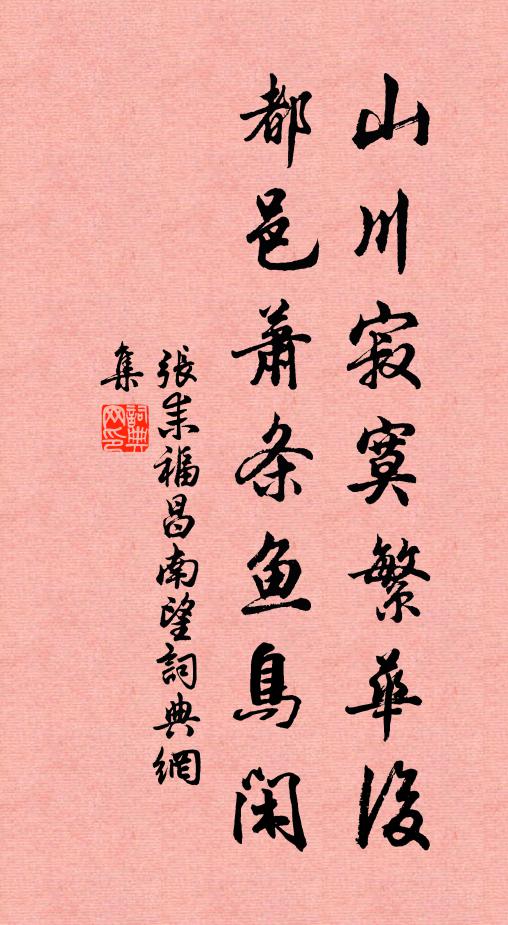 山川寂寞繁華後
都邑蕭条魚鳥閑
張耒福昌南望詞典網
集
詞典
网印